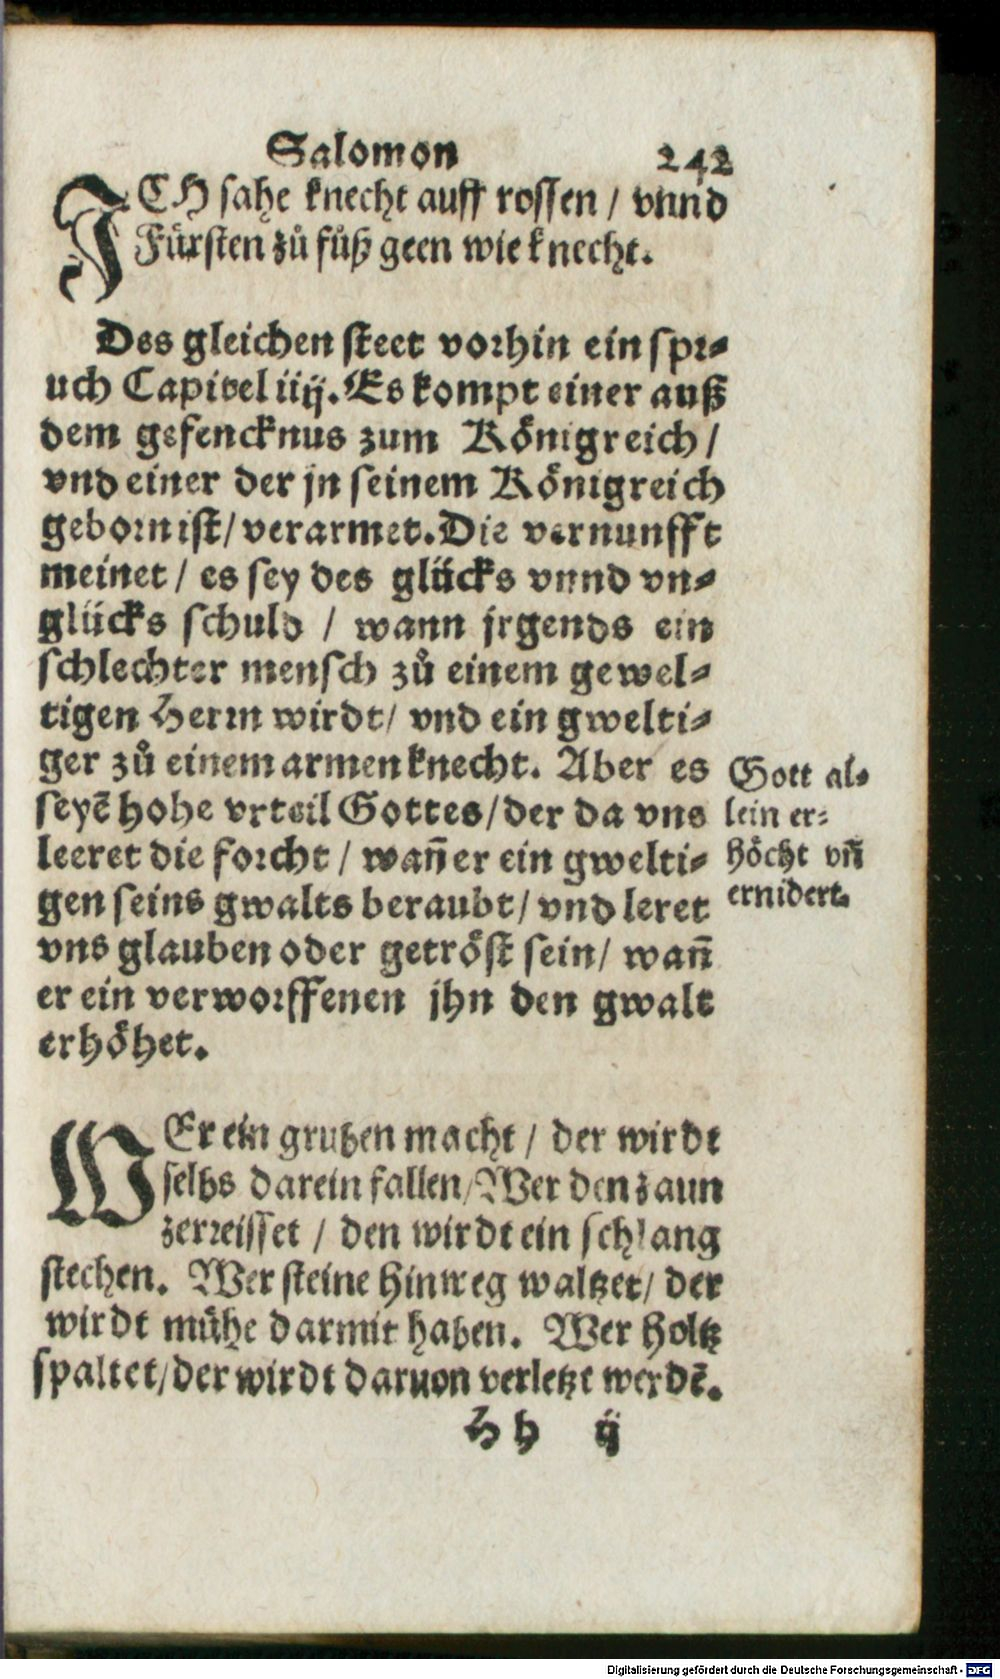 Salomon 242
ICH sahe knecht auff rossen / vnnd
Fürsten zů fůß geen wie knecht.
Des gleichen steet vorhin ein spr⸗
uch Capitel iiij. Es kompt einer auß
dem gefencknus zum Königreich /
vnd einer der jn seinem Königreich
geborn ist / verarmet. Die vernunfft
meinet / es sey des glücks vnnd vn⸗
glücks schuld / wann jrgends ein
schlechter mensch zů einem gewel⸗
tigen Herrn wirdt / vnd ein gwelti⸗
ger zů einem armen knecht. Aber es
seyē hohe vrteil Gottes / der da vns
leeret die forcht / wañ er ein gwelti⸗
gen seins gwalts beraubt / vnd leret
vns glauben oder getröst sein / wañ
er ein verworffenen jhn den gwalt
erhöhet.
Gott al⸗
lein er⸗
höcht vñ
ernidert.
WEr ein gruben macht / der wirdt
selbs darein fallen / Wer den zaun
zerreisset / den wirdt ein schlang
stechen. Wer steine hinweg waltzet / der
wirdt mühe darmit haben. Wer holtz
spaltet / der wirdt daruon verletzt werdē.
Hh ij
Digitalisierung gefördert durch die Deutsche Forschungsgemeinschaft - DFG